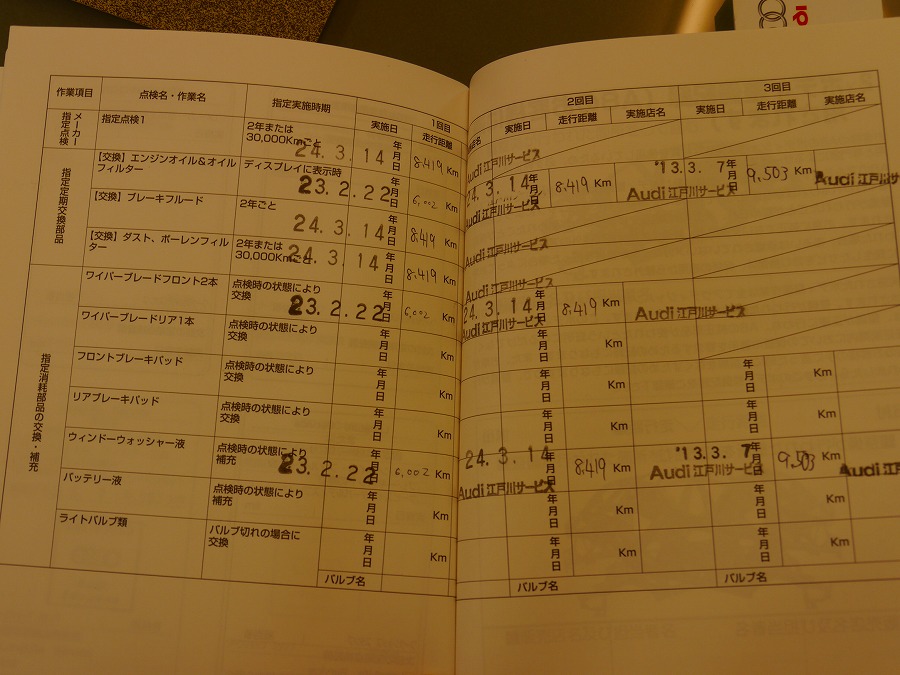 作業項目 点検名・作業名 指定実施時期 1回目 2回目 3回目
実施日 走行距離 店名 実施日 走行距離 実施店名 実施日 走行距離 実施店名
メーカー指定点検
指定点検1
2年または
30,000Kmごと
24.3.14 年月日 8,419 Km
Audi 江戸川サービス
指定定期交換部品
【交換】エンジンオイル&オイル
フィルター
ディスプレイに表示時
23.2.22 年月日 6,002 Km
Audi 江戸川サービス
24.3.14 年月日 8,419 Km
Audi 江戸川サービス
'13.3.7 年月日 9,503 Km
Audi 江戸川サ
【交換】ブレーキフルード
2年ごと
24.3.14 年月日 8,419 Km
Audi 江戸川サービス
【交換】ダスト、ポーレンフィル
ター
2年または
30,000Kmごと
24.3.14 年月日 8,419 Km
Audi 江戸川サービス
指定消耗部品の交換・補充
ワイパーブレードフロント2本
点検時の状態により
交換
23.2.22 年月日 6,002 Km
Audi 江戸川サービス
24.3.14 年月日 8,419 Km
Audi 江戸川サービス
ワイパーブレードリア1本
点検時の状態により
交換
年月日 Km 年月日 Km
フロントブレーキパッド
点検時の状態により
交換
年月日 Km 年月日 Km 年月日 Km
リアブレーキパッド
点検時の状態により
交換
年月日 Km 年月日 Km 年月日 Km
ウィンドーウォッシャー液
点検時の状態により
補充
23.2.22 年月日 6,002 Km
Audi 江戸川サービス
24.3.14 年月日 8,419 Km
Audi 江戸川サービス
'13.3.7 年月日 9,503 Km
Audi 江戸川
バッテリー液
点検時の状態により
補充
年月日 Km 年月日 Km 年月日 Km
ライトバルブ類
バルブ切れの場合に
交換
年月日 Km 年月日 Km 年月日 Km
バルブ名 バルブ名 バルブ名